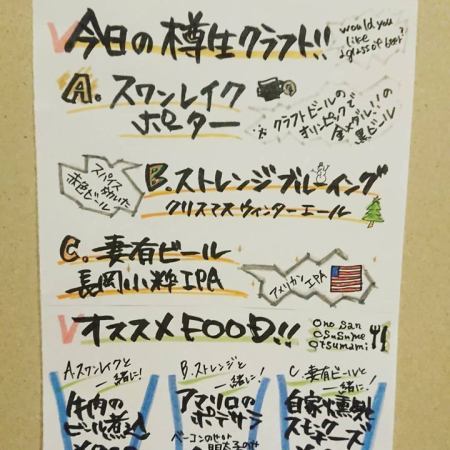 今日の樽生クラフト!!
would you
like
a glass of beer?
A. スワンレイク
ポーター
クラフトビールの
オリンピックで
金メダル!!の
黒ビール
スパイス
効いた
赤色ビール
B. ストレンジブルーイング
クリスマスウィンターエール
C. 妻有ビール
長岡小粋IPA
アメリカンIPA
オススメFOOD!!
Ono San
OSuSume
Otsumami
A.スワンレイクと
一緒に!
牛肉の
ビール煮込
B.ストレンジと
一緒に!
アマリロの
ポテサラ
C.妻有ビールと
一緒に!
自家燻製
スモークチーズ